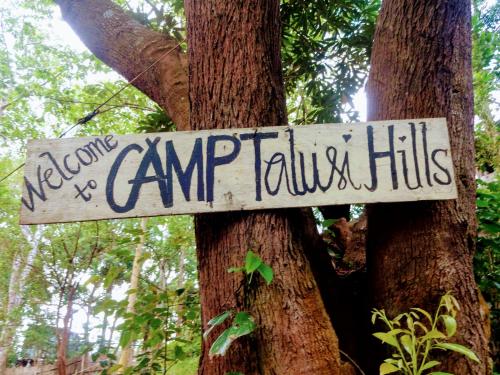 Welcome to CAMP Talusi Hills